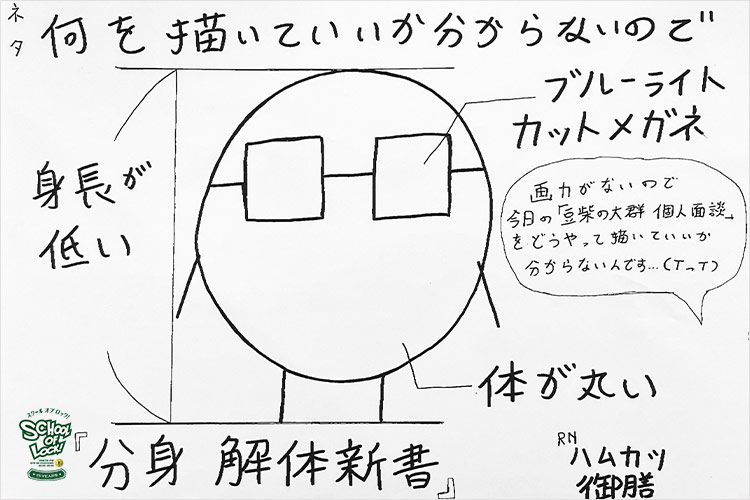 ネタ
何を描いていいか分からないので
ブルーライト
カットメガネ
身長が
低い
画力がないので
今日の「豆柴の大群 個人面談」
をどうやって描いていいか
分からないんです…(T_T)
体が丸い
スクールオブロック!
SCHOOL
OF
LOCK!
『分身 解体新書』
RN
ハムカツ
御膳